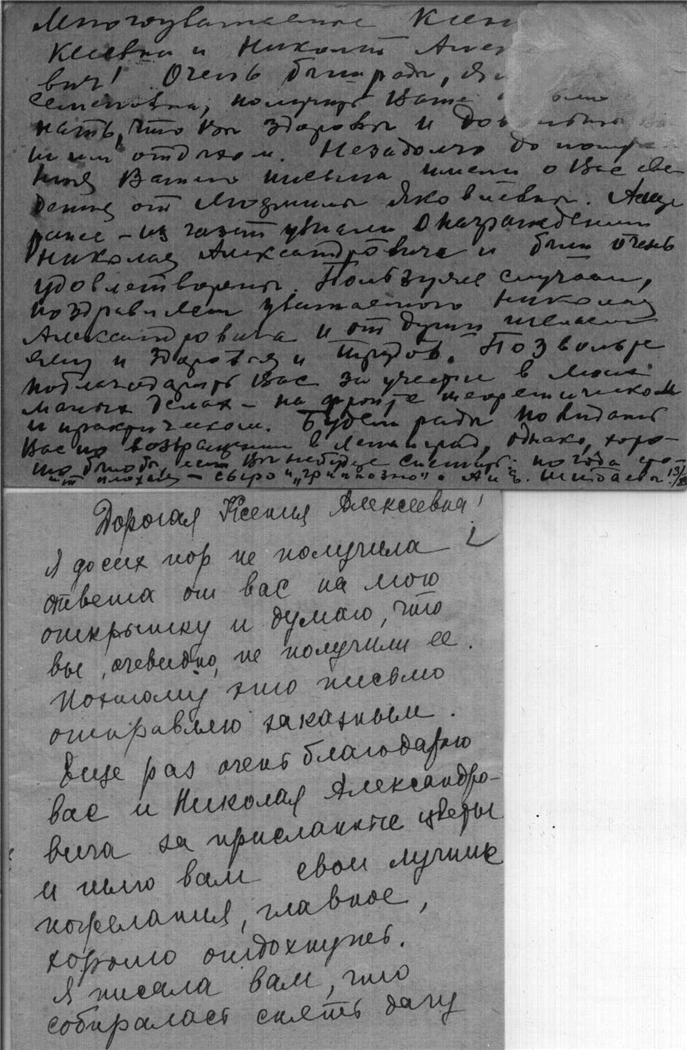 Многоуважаемые Ксен
ксеевна и Николай Алек
вич! Очень были рады, я и
Семеновна, получить Ваше
нать, что вы здоровы и довольны
шим отдыхом. Незадолго до получе
ния Вашего письма имели о Вас све
дения от Людмилы Яковлевны. А еще
ранее – из газет узнали о награждении
Николая Александровича и были очень
удовлетворены. Пользуясь случаем,
поздравляем уважаемого Николая
Александровича и от души желаем
ему и здоровья и трудов. Позвольте
поблагодарить Вас за участие в моих
малых делах – на фронте теоретическом
и практическом. Будем рады повидать
Вас по возвращении в Ленинград, однако, хоро-
шо было бы, если Вы не будете спешить: погода
плохая – сыро и "гриппозно".
Дорогая Ксения Алексеевна!
Я до сих пор не получила
ответа от вас на мою
открытку и думаю, что
вы, очевидно, не получили ее.
Поэтому это письмо
отправляю заказным.
Еще раз очень благодарю
вас и Николая Александро-
вича за присланные цветы
и шлю вам свои лучшие
пожелания, главное,
хорошо отдохнуть.
Я писала вам, что
собиралась снять дачу